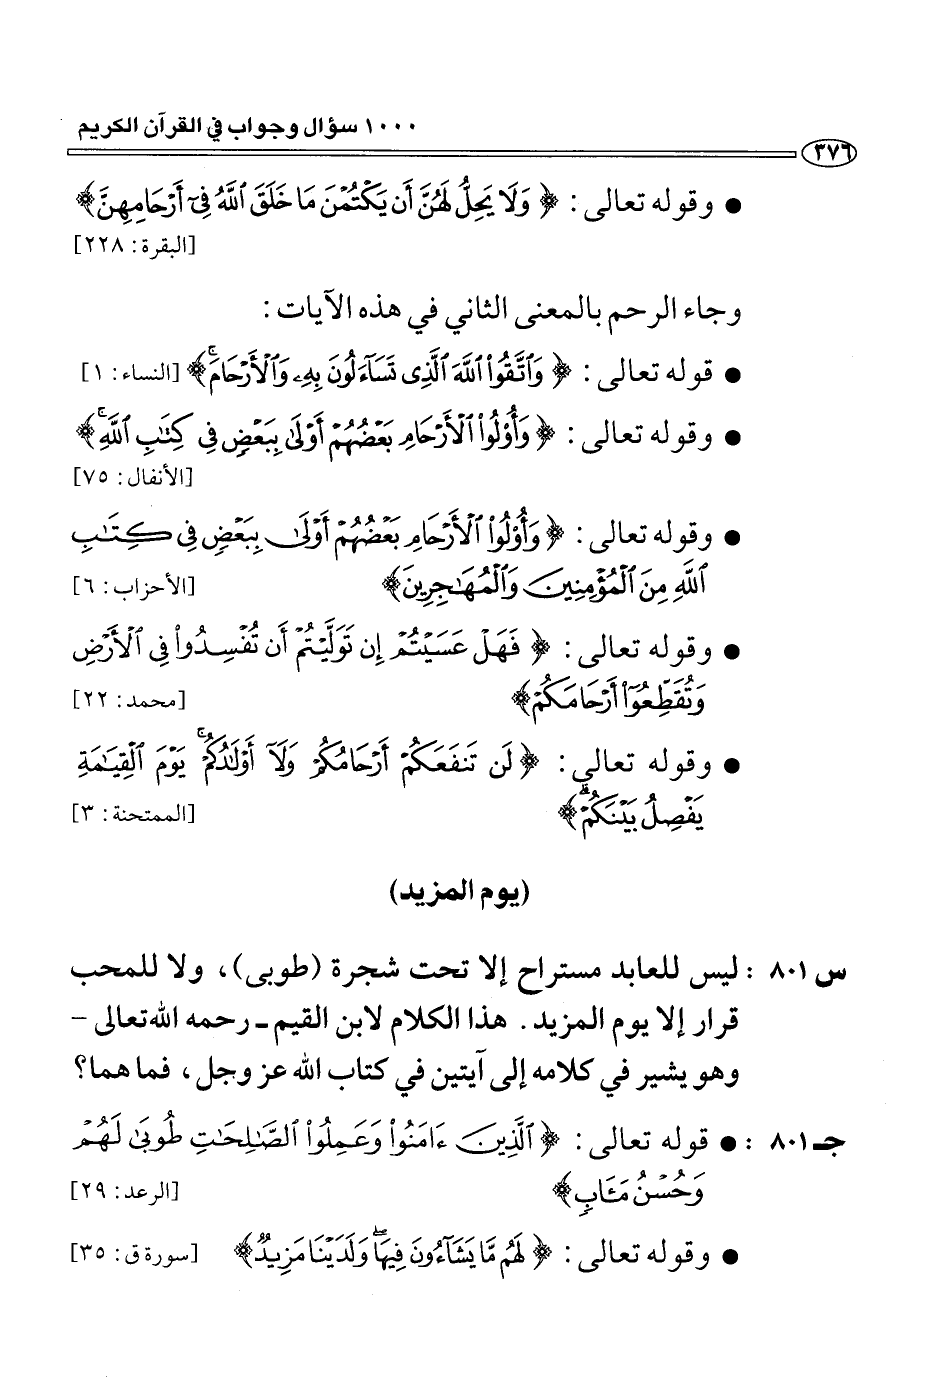 ١٠٠٠ سؤال وجواب في القرآن الكريم
٣٧٦
● وقوله تعالى : ﴿ وَلَا يَحِلُّ لَهُنَّ أَن يَكْتُمْنَ مَا خَلَقَ ٱللَّهُ فِىٓ أَرْحَامِهِنَّ ﴾
[البقرة : ٢٢٨]
وجاء الرحم بالمعنى الثاني في هذه الآيات :
● قوله تعالى : ﴿ وَٱتَّقُوا۟ ٱللَّهَ ٱلَّذِى تَسَآءَلُونَ بِهِۦ وَٱلْأَرْحَامَ ۚ ﴾ [النساء : ١]
● وقوله تعالى : ﴿ وَأُو۟لُوا۟ ٱلْأَرْحَامِ بَعْضُهُمْ أَوْلَىٰ بِبَعْضٍ فِى كِتَٰبِ ٱللَّهِ ۚ ﴾
[الأنفال : ٧٥]
● وقوله تعالى : ﴿ وَأُو۟لُوا۟ ٱلْأَرْحَامِ بَعْضُهُمْ أَوْلَىٰ بِبَعْضٍ فِى كِتَٰبِ
ٱللَّهِ مِنَ ٱلْمُؤْمِنِينَ وَٱلْمُهَٰجِرِينَ ﴾ [الأحزاب : ٦]
● وقوله تعالى : ﴿ فَهَلْ عَسَيْتُمْ إِن تَوَلَّيْتُمْ أَن تُفْسِدُوا۟ فِى ٱلْأَرْضِ
وَتُقَطِّعُوٓا۟ أَرْحَامَكُمْ ﴾ [محمد : ٢٢]
● وقوله تعالى : ﴿ لَن تَنفَعَكُمْ أَرْحَامُكُمْ وَلَآ أَوْلَٰدُكُمْ ۚ يَوْمَ ٱلْقِيَٰمَةِ
يَفْصِلُ بَيْنَكُمْ ۚ ﴾ [الممتحنة : ٣]
(يوم المزيد)
س ٨٠١ : ليس للعابد مستراح إلا تحت شجرة (طوبى) ، ولا للمحب
قرار إلا يوم المزيد . هذا الكلام لابن القيم - رحمه الله تعالى -
وهو يشير في كلامه إلى آيتين في كتاب الله عز وجل ، فما هما؟
جـ ٨٠١ : ● قوله تعالى : ﴿ ٱلَّذِينَ ءَامَنُوا۟ وَعَمِلُوا۟ ٱلصَّٰلِحَٰتِ طُوبَىٰ لَهُمْ
وَحُسْنُ مَـَٔابٍ ﴾ [الرعد : ٢٩]
● وقوله تعالى : ﴿ لَهُم مَّا يَشَآءُونَ فِيهَا ۖ وَلَدَيْنَا مَزِيدٌ ﴾ [سورة ق : ٣٥]